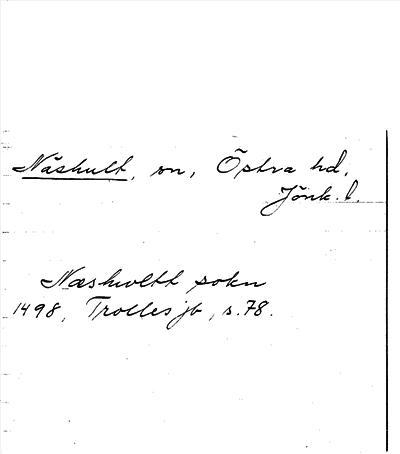 Näshult, sn, Östra hd,
Jönk. l.
Næshwltt sokn
1498, Trolles jb, s. 78.